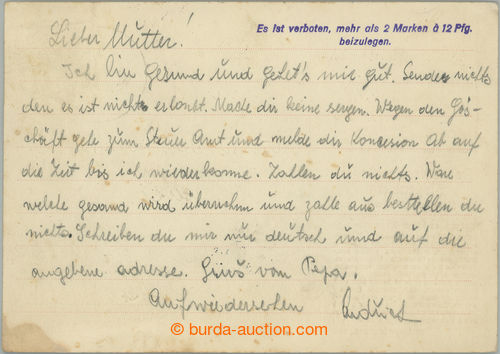 Es ist verboten, mehr als 2 Marken à 12 Pfg.
beizulegen.
Lieber Mutter!
Ich bin Gesund und gehet's mir gut. Senden nichts
den es ist nichts erlaubt. Mache dir keine sorgen. Wegen den Ges-
chäft gehe zum Steuer Amt und melde die Koncesion Ab auf
die Zeit bis ich wiederkomme. Zahlen du nichts. Ware
welche gesand wird übernehm und zahle aus besttellen du
nichts. Schreiben du mir nur deutsch und auf die
angebene adresse. Grüs vom Pepa.
Aufwiedersehen
© burda-auction.com